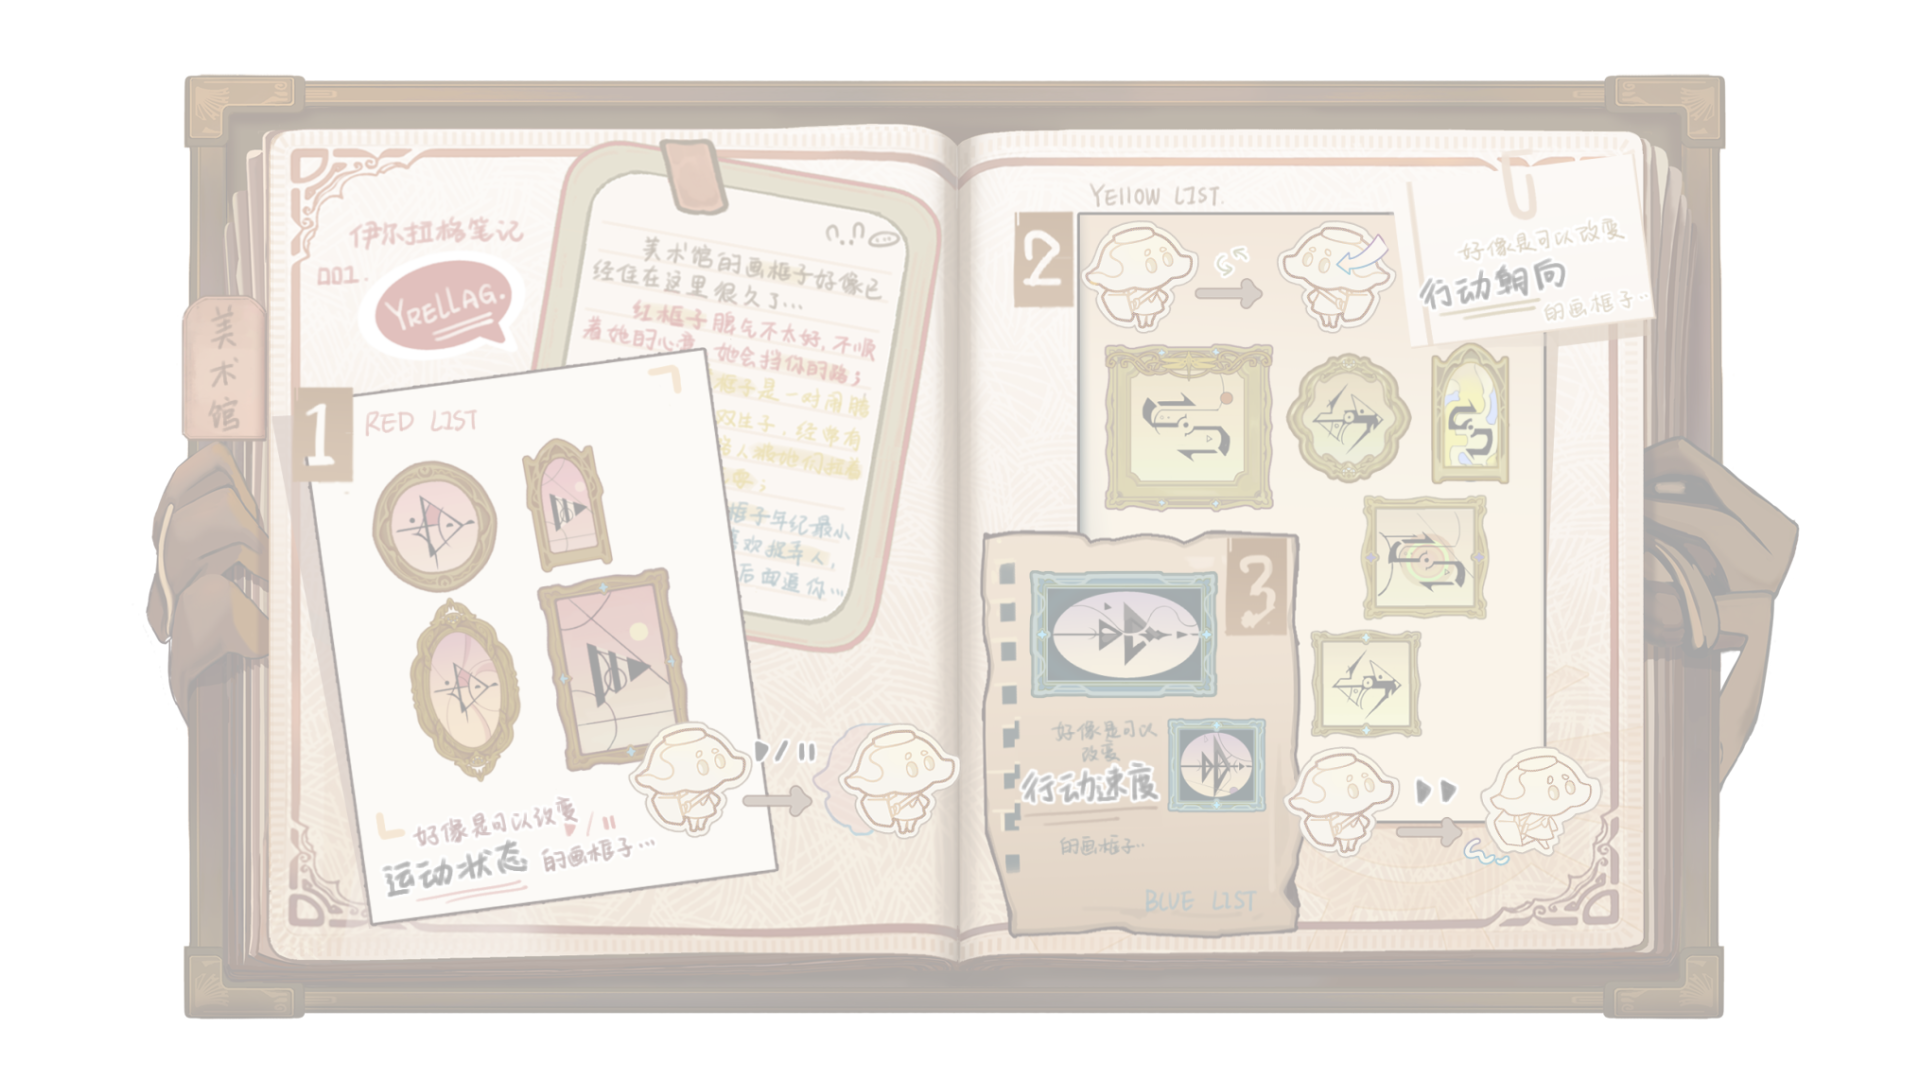 美术馆
伊尔拉格笔记
001.
YRELLAG.
美术馆的画框子好像已
经住在这里很久了...
红框子脾气不太好,不顺
着她的心意,她会挡你的路;
框子是一对闹腾
双生子,经常有
人被她们拉着
框子年纪最小
喜欢捉弄人,
后面逗你...
1
RED LIST
好像是可以改变
运动状态 的画框子...
YEllOW LIST.
2
好像是可以改变
行动朝向
的画框子..
3
好像是可以
改变
行动速度
的画框子..
BLUE LIST